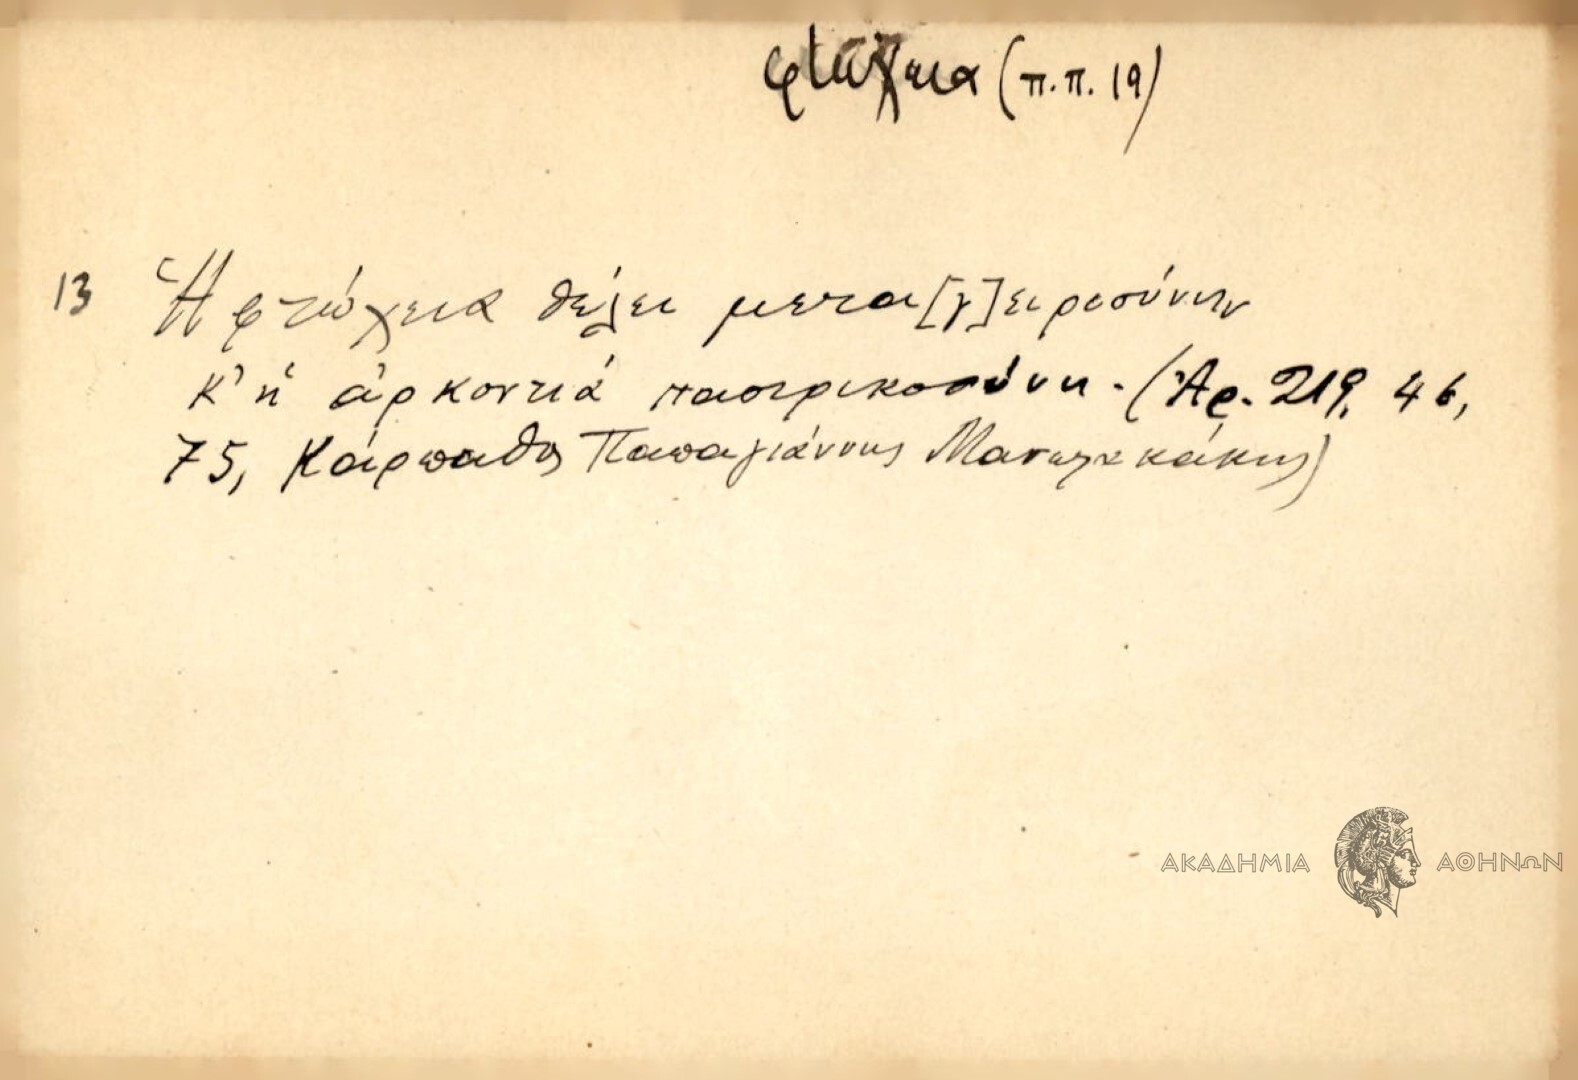 φτώχεια (π.π. 19)
13 Ἡ φτώχεια θέλει μετα[γ]ειροσύνην
κ' ἡ ἀρκοντιά παστρικοσύνη. (Ἀρ. 219, 46,
75, Κάρπαθος Παπαγιάννης Μανωλακάκης)
ΑΚΑΔΗΜΙΑ ΑΘΗΝΩΝ